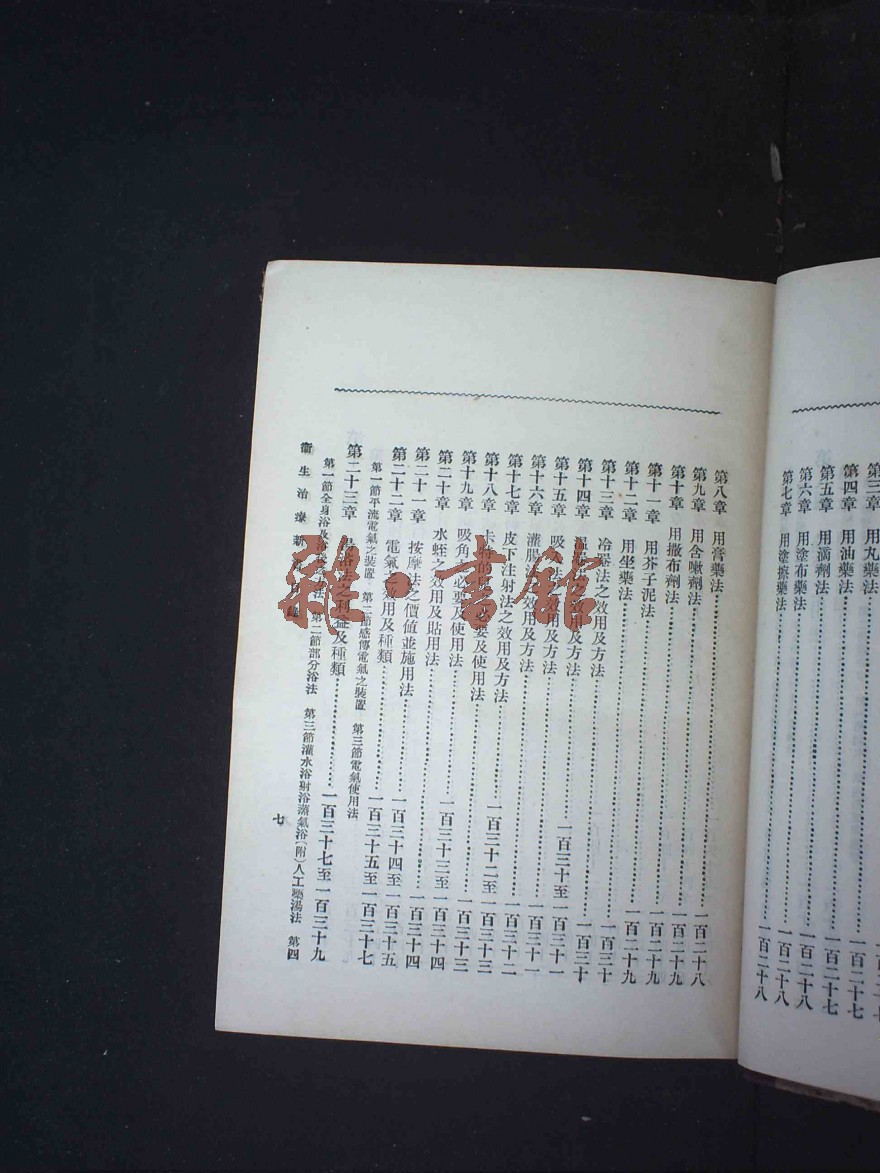 第三章　用丸藥法
第四章　用油藥法……一百二十七
第五章　用滴劑法……一百二十七
第六章　用塗布藥法……一百二十八
第七章　用塗擦藥法……一百二十八
第八章　用膏藥法……一百二十八
第九章　用含嗽劑法……一百二十八
第十章　用撒布劑法……一百二十九
第十一章　用芥子泥法……一百二十九
第十二章　用坐藥法……一百二十九
第十三章　冷罨法之效用及方法……一百三十
第十四章　之效用及方法……一百三十
第十五章　吸入之效用及方法……一百三十至一百三十一
第十六章　灌腸法效用及方法……一百三十一
第十七章　皮下注射法之效用及方法……一百三十二
第十八章　的必要及使用法……一百三十二至一百三十三
第十九章　吸角之必要及使用法……一百三十三
第二十章　水蛭之效用及貼用法……一百三十三至一百三十四
第二十一章　按摩法之價值並施用法……一百三十四
第二十二章　電氣之效用及種類……一百三十四至一百三十五
第一節平流電氣之裝置　第二節感傳電氣之裝置　第三節電氣使用法……一百三十五至一百三十七
第二十三章　浴法之利益及種類……一百三十七至一百三十九
第一節全身浴及浴法　第二節部分浴法　第三節灌水浴射浴蒸氣浴(附)人工藥湯法　第四
衛生治療新
七
雜·書館